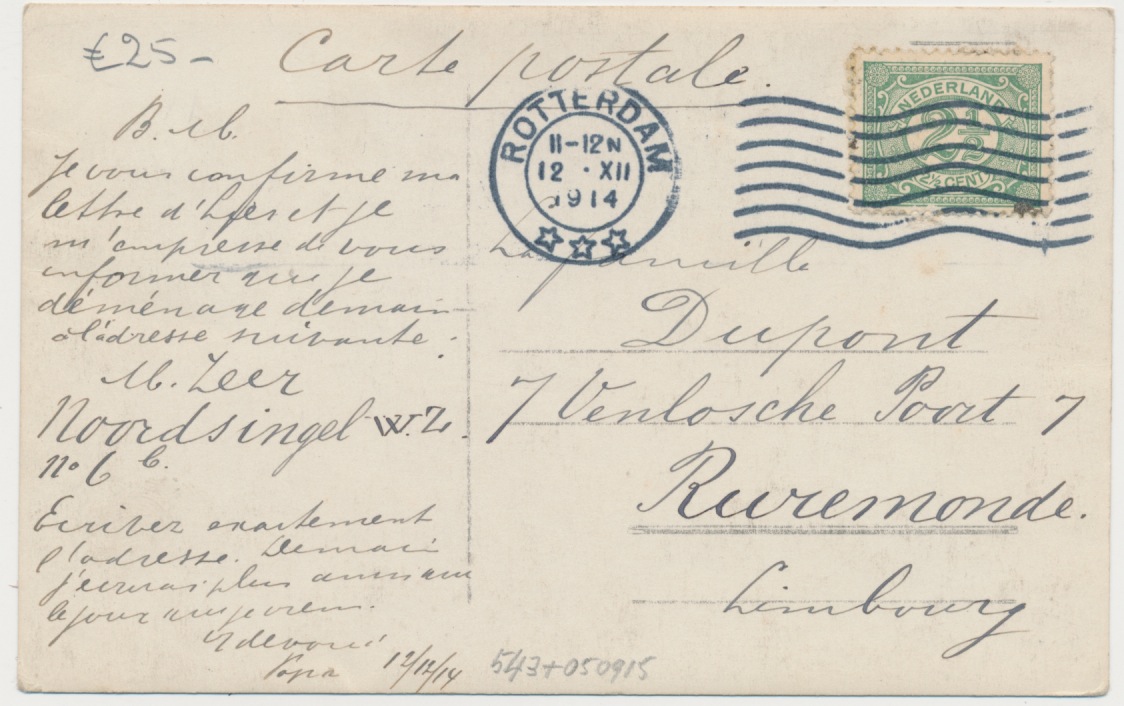 £25-
Carte postale.
NEDERLAND
2½
2½ CENT
ROTTERDAM
11-12N
12 · XII
1914
B. M.
Je vous confirme ma
lettre d'hier et je
m'empresse de vous
informer que je
déménage demain
à l'adresse suivante.
M. Zeer
Noordsingel W.Z.
no 6 b.
Ecrivez exactement
l'adresse. Demain
j'écrirai plus
le jour que je
Papa 12/12/14
La famille
Dupont
7 Venlosche Poort 7
Ruremonde.
Limbourg
543+050915